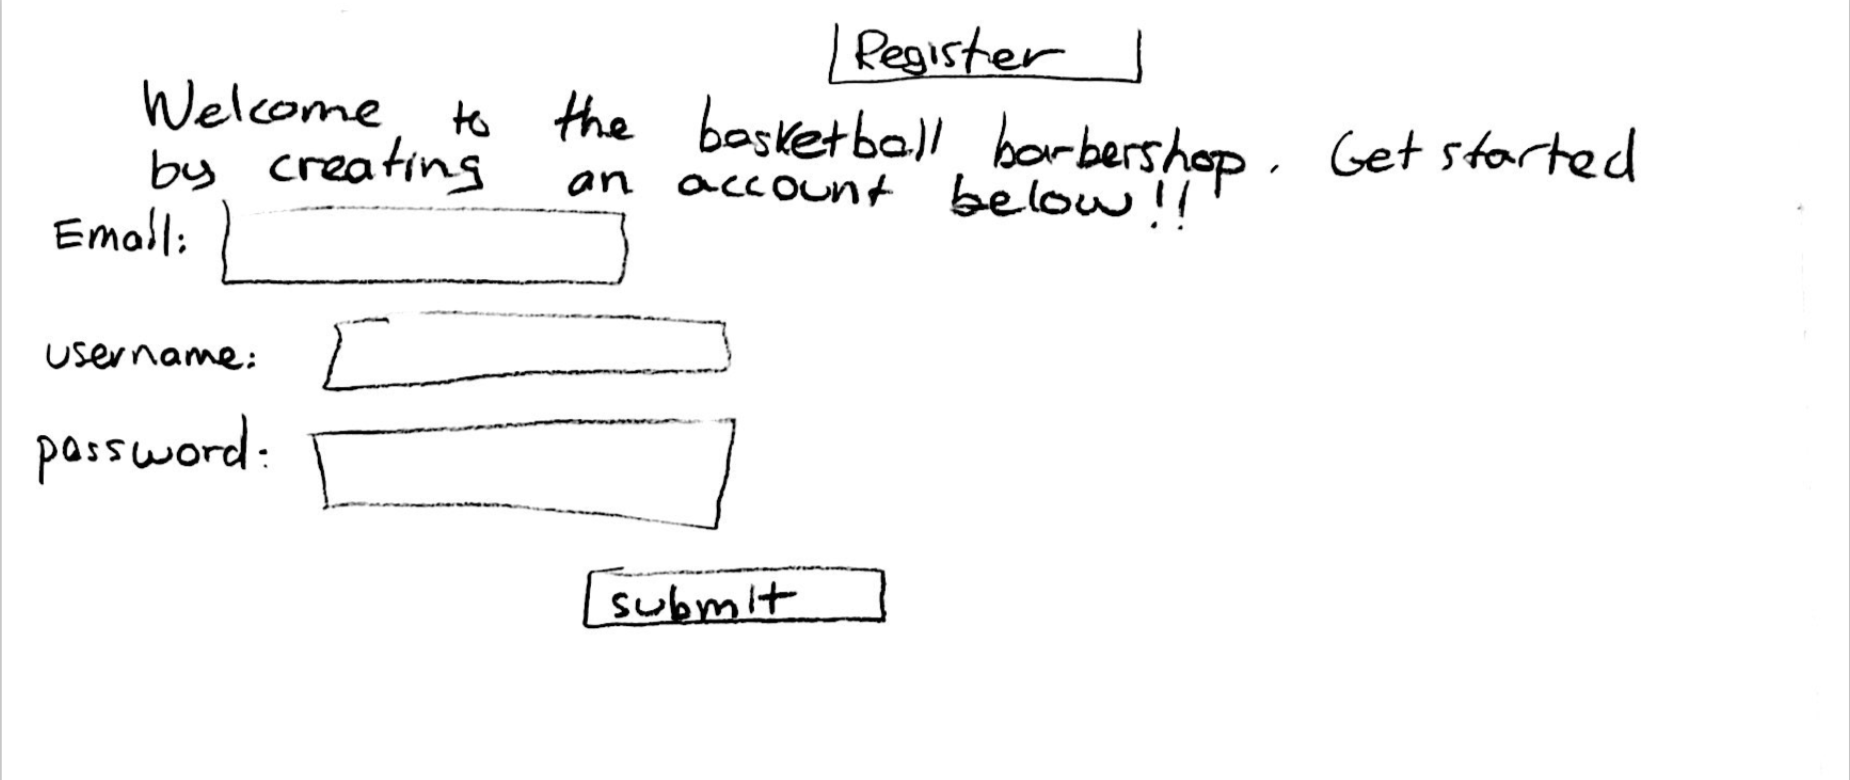 Register
Welcome to the basketball barbershop. Get started
by creating an account below!!
Email:
username:
password:
submit